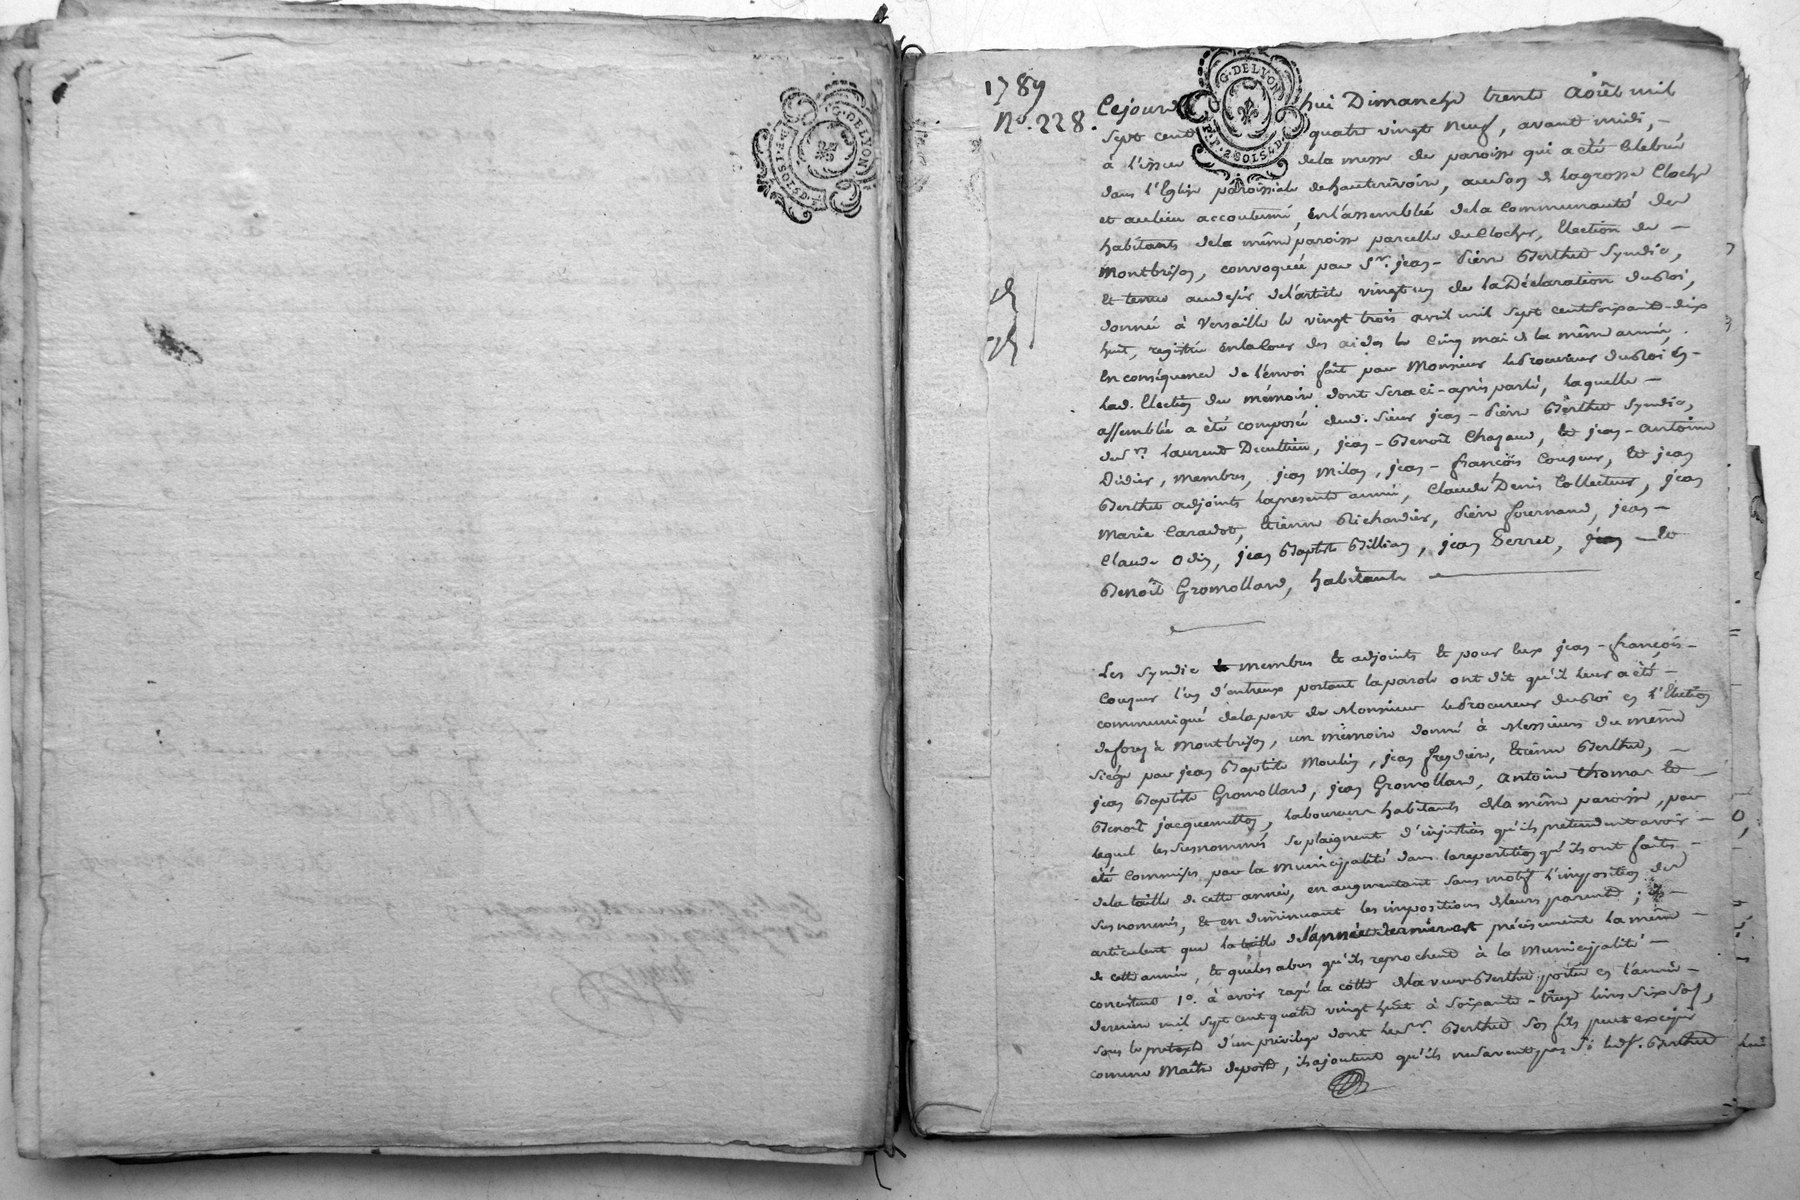 G. DE LYON
P. F. 2 SOLS 4 D.
1789
N.° 228.
G. DE LYON
P. F. 2 SOLS 4 D.
Cejourd'hui Dimanche trente Août mil
sept cent quatre vingt neuf, avant midi, –
à l'issue de la messe de paroisse qui a été célébrée
dans l'Eglise paroissiale de hauterivoire, au son de la grosse Cloche
et au lieu accoutumé, en l'assemblée de la Communauté des
habitants de la même paroisse parcelle du Clocher, Election de –
Montbrison, convoquée par S.r jean-Pierre Berthet Syndic,
et tenue au desir de l'article vingt un de la Déclaration du Roi,
donnée à Versaille le vingt trois avril mil sept cent soixante-dix
huit, registrée en la Cour des aides le cinq mai de la même année,
en conséquence de l'envoi fait par Monsieur le Procureur du Roi en
lad. Election du mémoire dont sera ci-après parlé, laquelle –
assemblée a été composée dud. sieur jean-Pierre Berthet Syndic,
des s.rs Laurent Decultieu, jean-Benoît Chazaud, et jean-antoine
Didier, membres, jean Milan, jean-françois Couzeur, et jean
Berthet adjoints la présente année, Claude Denis Collecteur, jean
Marie Caradot, Etienne Richardier, Pierre fournand, jean –
Claude Odin, jean Baptiste Billion, jean Perret, – et
Benoît Gromolard, habitants
Les Syndic membres et adjoints et pour eux jean-françois –
Couzeur l'un d'entreux portant la parole ont dit qu'il leur a été –
communiqué de la part de Monsieur le Procureur du Roi en l'Election
de forez à Montbrison, un mémoire donné à Messieurs du même
siège par jean Baptiste Moulin, jean freydière, Etienne Berthet, –
jean Baptiste Gromollard, jean Gromollard, Antoine thomas et –
Benoît jacquemetton, laboureurs habitants de la même paroisse, par
lequel les susnommés se plaignent d'injustices qu'ils prétendent avoir –
été commises par la Municipalité dans la repartition qu'ils ont faite –
de la taille de cette année, en augmentant sans motif l'imposition des
susnommés, et en diminuant les impositions de leurs parents; –
articulent que la taille de l'année dernière est précisément la même –
de cette année, et que les abus qu'ils reprochent à la Municipalité –
consistent 1.° à avoir rayé la côtte de la veuve Berthet portée en l'année –
derniere mil sept cent quatre vingt huit à soixante-treize livres six sols,
sous le pretexte d'un privilege dont le S.r Berthet son fils peut exciper
comme Maître de poste, ils ajoutent qu'ils ne savent pas si led. s. Berthet